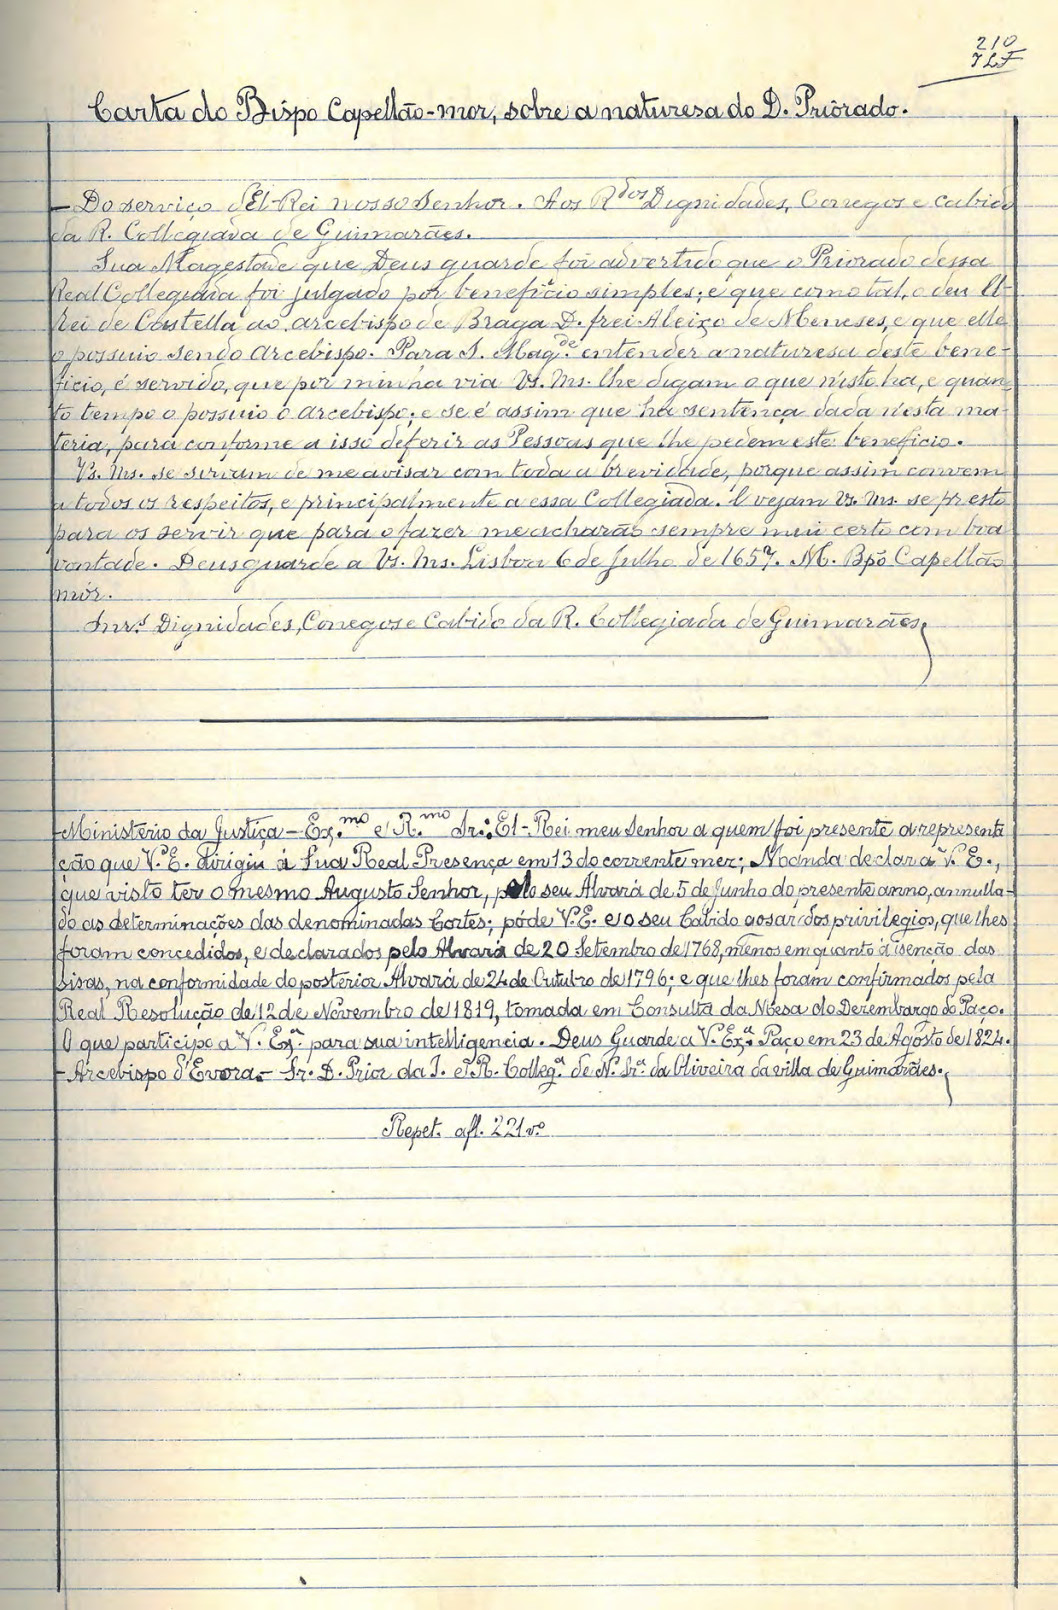 210
JLF
Carta do Bispo Capellão-mor, sobre a naturesa do D. Priorado.
— Do serviço d'El-Rei nosso Senhor. Aos R.dos Dignidades, Conegos e cabido
da R. Collegiada de Guimarães.
Sua Magestade que Deus guarde foi advertido que o Priorado dessa
Real Collegiada foi julgado por beneficio simples; e que como tal, o deu El-
Rei de Castella ao arcebispo de Braga D. frei Aleixo de Meneses, e que elle
o possuio sendo Arcebispo. Para S. Mag.de entender a naturesa deste bene-
ficio, é servido, que por minha via Vs. Ms. lhe digam o que n'isto ha, e quan-
to tempo o possuio o arcebispo; e se é assim que ha sentença dada n'esta ma-
teria, para conforme a isso deferir as Pessoas que lhe pedem este beneficio.
Vs. Ms. se sirvam de me avisar com toda a brevidade, porque assim convem
a todos os respeitos, e principalmente a essa Collegiada. E vejam Vs. Ms. se presto
para os servir que para o fazer me acharão sempre mui certo com boa
vontade. Deus guarde a Vs. Ms. Lisboa 6 de Julho de 1657. M. Bpõ Capellão
mór.
Snr.s Dignidades, Conegos e Cabido da R. Collegiada de Guimarães,
Ministerio da Justiça — Ex.mo e R.mo Sr.: El-Rei meu Senhor a quem foi presente a representa
ção que V. E. dirigiu á Sua Real Presença em 13 do corrente mez; Manda declarar a V. E.,
que visto ter o mesmo Augusto Senhor, pelo seu Alvará de 5 de Junho do presente anno, annulla-
do as determinações das denominadas Cortes; póde V. E. e o seu Cabido gosar dos privilegios, que lhes
foram concedidos, e declarados pelo Alvará de 20 Setembro de 1768, menos em quanto á isenção das
Sisas, na conformidade do posterior Alvará de 24 de Outubro de 1796; e que lhes foram confirmados pela
Real Resolução de 12 de Novembro de 1819, tomada em Consulta da Mesa do Dezembargo do Paço.
O que participo a V. Ex.ª para sua intelligencia. Deus Guarde a V. Ex.ª Paço em 23 de Agosto de 1824.
— Arcebispo d'Evora. — Sr. D. Prior da I. e R. Colleg.ª de N. Sr.ª da Oliveira da villa de Guimarães.
Repet. a fl. 221 v.º